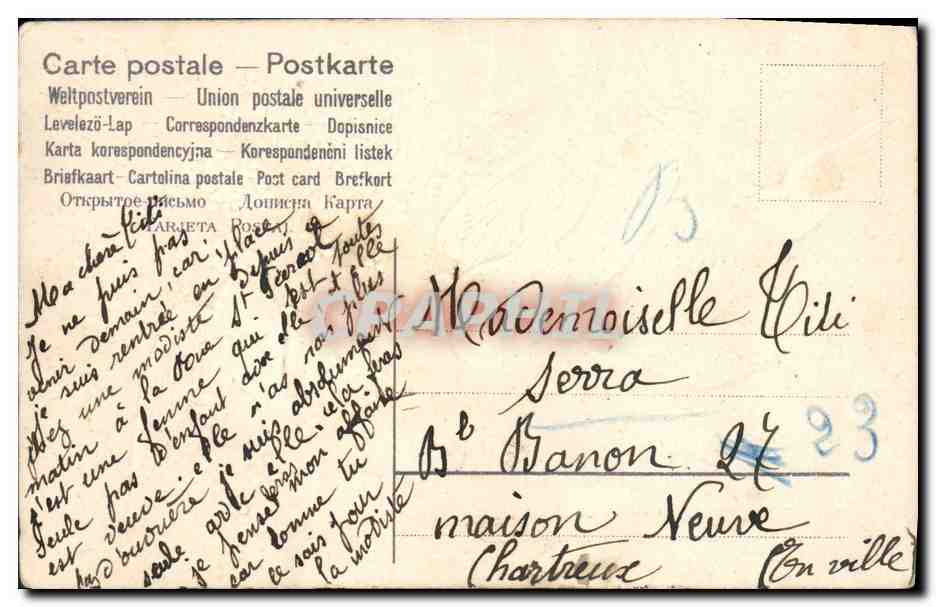 Carte postale — Postkarte
Weltpostverein — Union postale universelle
Levelezö-Lap — Correspondenzkarte — Dopisnice
Karta korespondencyjna — Korespondenční listek
Briefkaart — Cartolina postale — Post card — Brefkort
Открытое письмо Дописна Карта
Tarjeta Postal
Ma chère Titi
Je ne puis pas
venir demain, car
je suis rentrée en place
chez une modiste depuis ce
matin à la rue St
c'est une femme qui est toutes
seule pas d'enfant elle
est veuve, elle n'as pas plus
d'ouvrière je suis absolument
seule avec elle. ça feras
je pense bien mon affaire
car comme tu
ce sais pour
la modiste
B
Mademoiselle Titi
Serra
Bd Banon 27 23
maison Neuve
Chartreux (En ville)